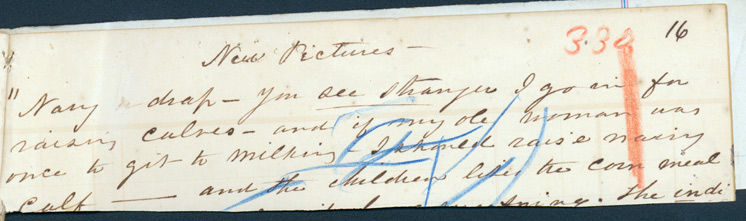 New Pictures —
338
16
"Nary a drap — You see stranger I go in for
raising calves — and if my ole woman was
once to git to milking I should raise nary
calf — and the children likes the corn meal
morning. The indi